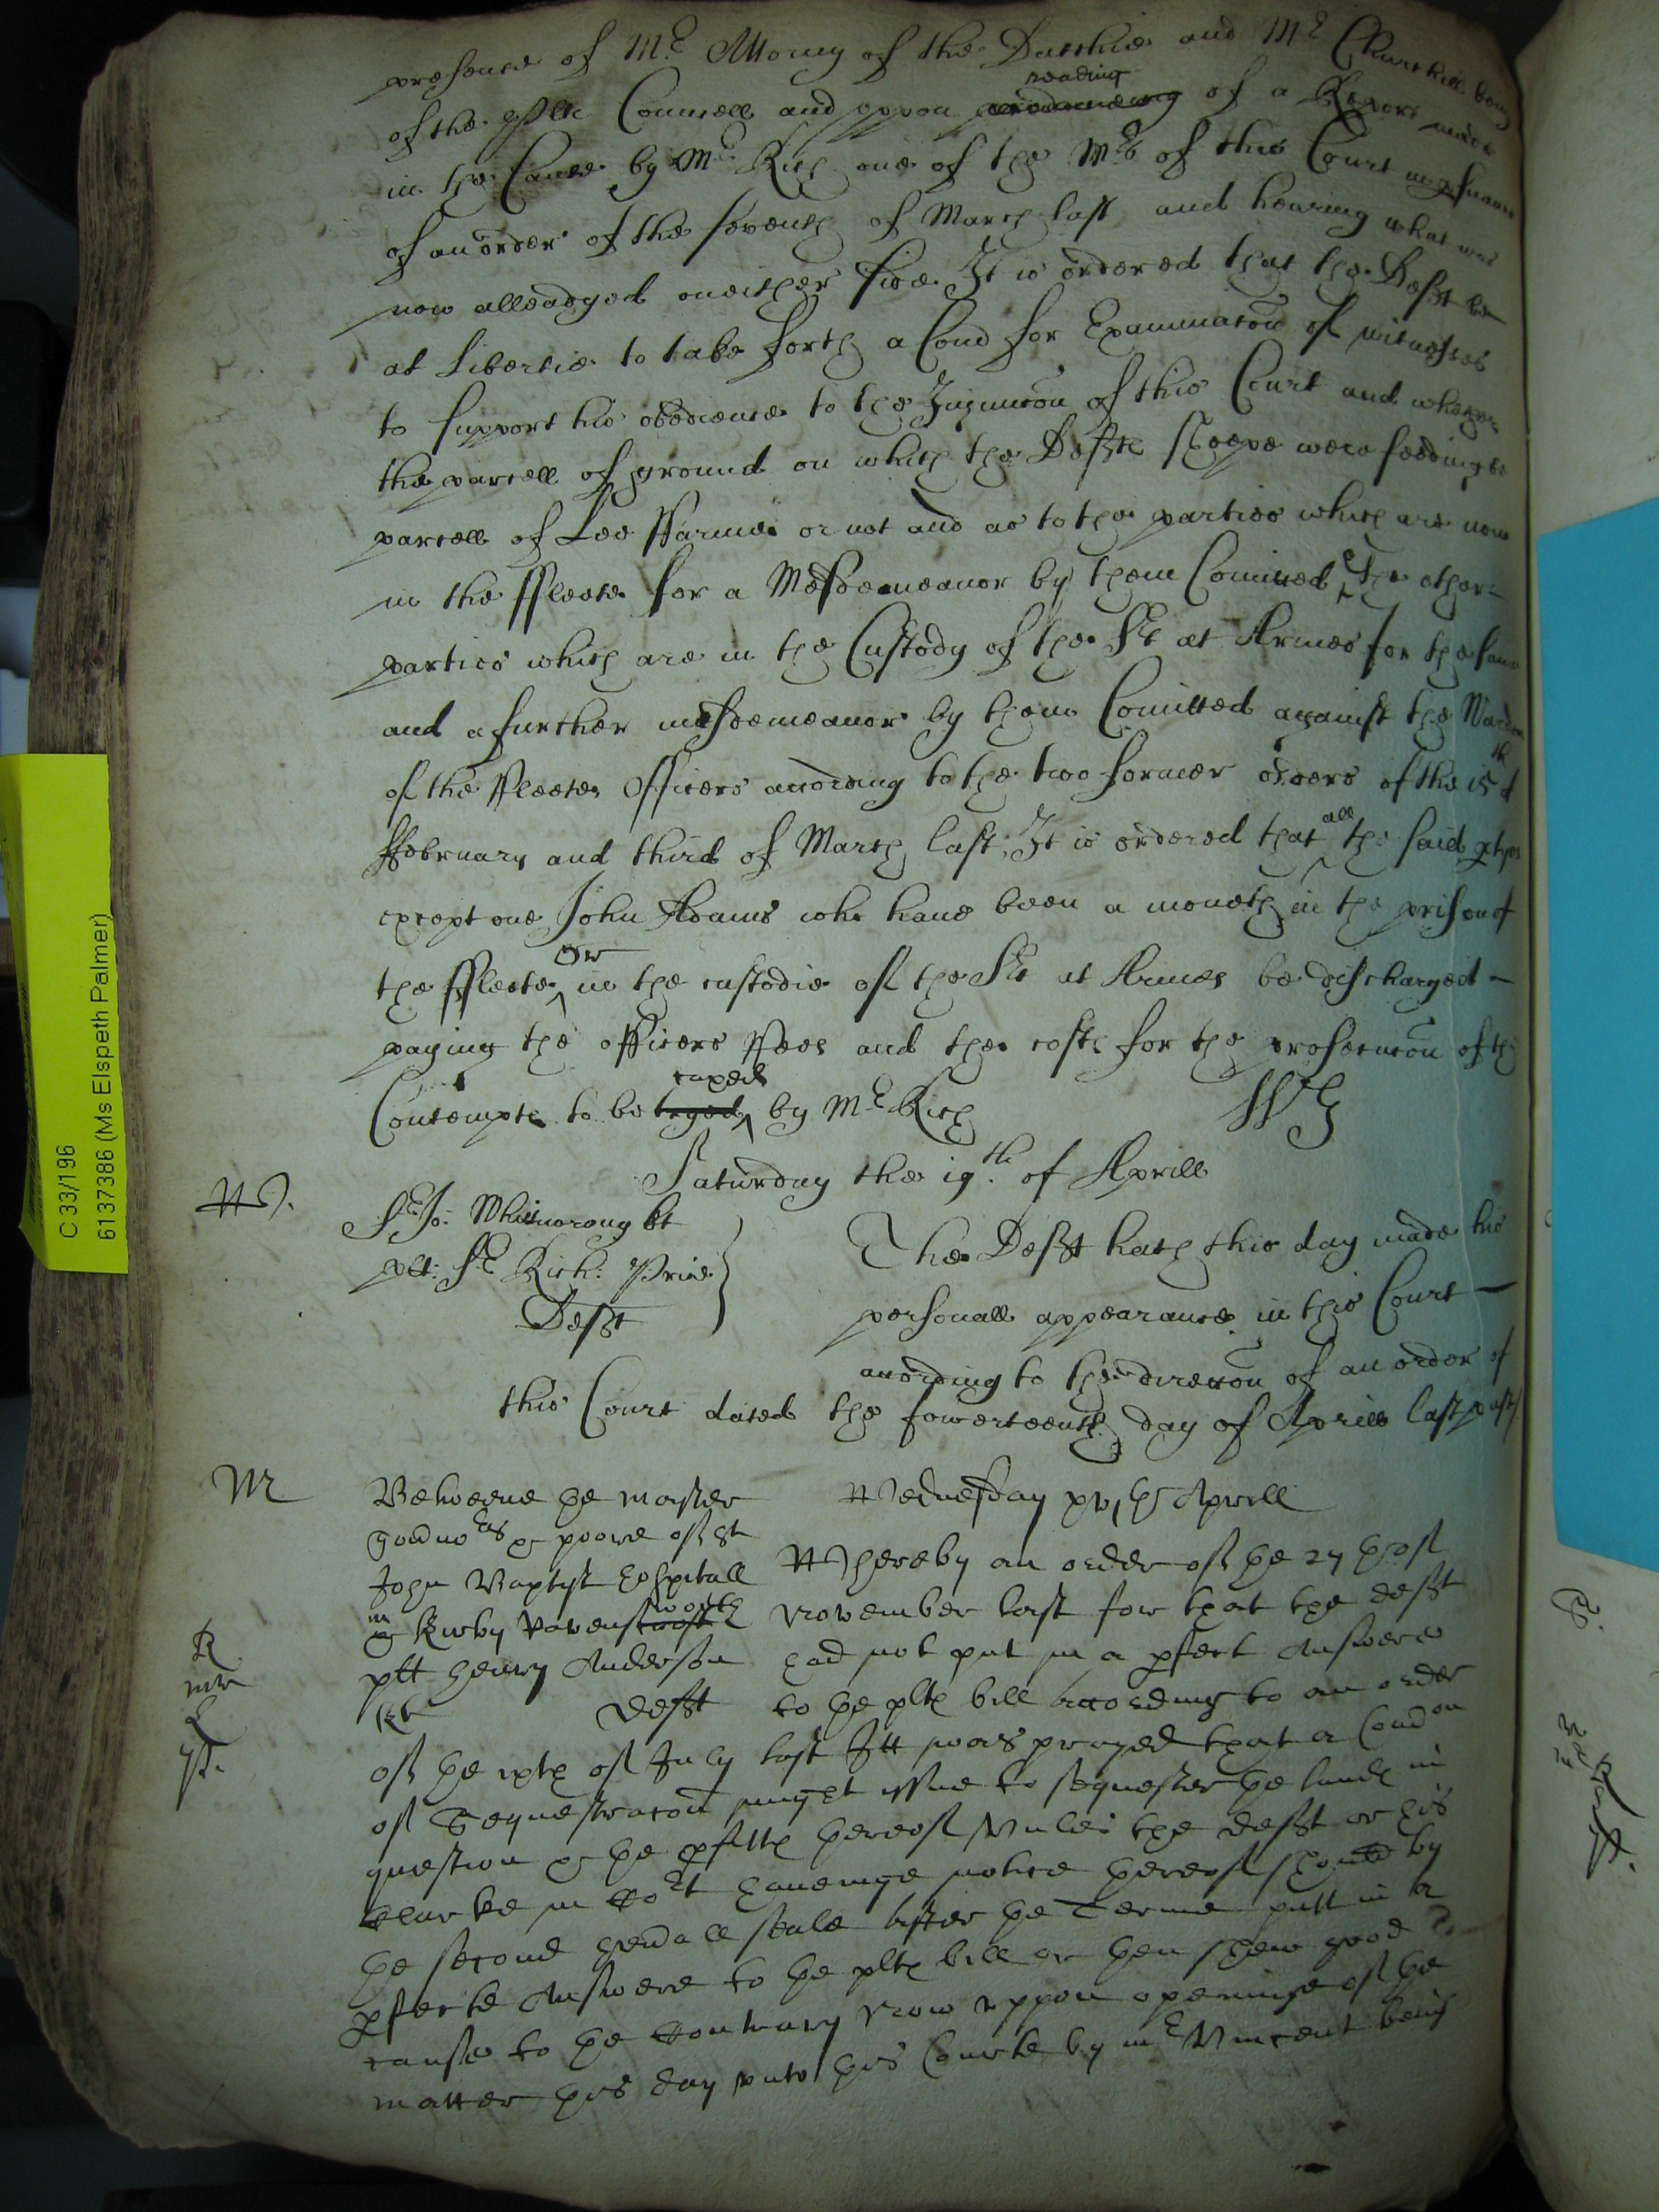 presence of Mr. Attorny of the Dutchie and Mr Churchill being
of the plts Councell and uppon reading of a Report made
in the Cause by Mr Rich one of the Mrs of this Court in
of an order of the seventh of March last and hearing what was
now alleadged on either side It is ordered that the Deft be
at Libertie to take forth a Comd for Examinacon of witnesses
to support his obedience to the Iniunccon of this Court and whether
the parcell of ground on which the Defts sheepe were feeding be
parcell of Lee ffarme or not and as to the parties which are now
in the ffleete for a Misdemeanor by them Comitted & the other
parties which are in the Custody of the Sert at Armes for the same
and a further misdemeanor by them Comitted against the Warden
of the ffleetes Officers according to the two former orders of the 15th of
ffebruary and third of March last, It is ordered that all the said ptyes
except one John Adams who have been a moneth in the prison of
the ffleete or in the custodie of the Sert at Armes be discharged
paying the officers ffees and the costs for the prosecucon of the
Contempte to be taxed by Mr Rich
Saturday the 19th. of Aprill
Sr Jo: Whitworong Bt
plt. Sr Rich: Price
Deft
The Deft hath this day made his
personall appearance in this Court
according to the direccon of an order of
this Court dated the fowerteenth day of Aprill last past
M
Betweene the master
Wednesday xvi th Aprill
goodnors & poore of St
John Baptist hospitall
in Kirby Ravensworth
plt Henry Anderson
Deft
Whereby an order of the 27 th of
November last for that the deft
had not put in a pfect Answere
to the plts bill according to an order
of the ixth of July last Itt was prayed that a Comdon
of Sequestracon might issue to sequester the lands in
question & the pfitts thereof Unles the deft or his
Clarke in Cort haveinge notice thereof should by
the second genall seale after the Terme putt in a
pfecte Answere to the plts bill or then shew good
cause to the Contrary Now uppon openinge of the
matter this day unto this Courte by mr Vincent being
C 33/196
6137386 (Ms Elspeth Palmer)